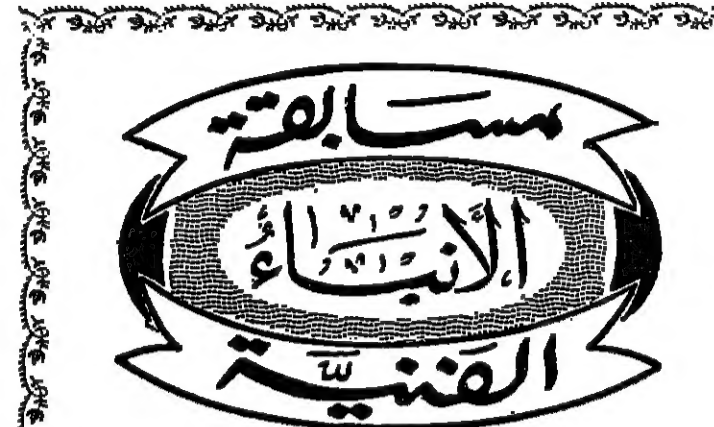 مسابقة
الأنباء
الفنية